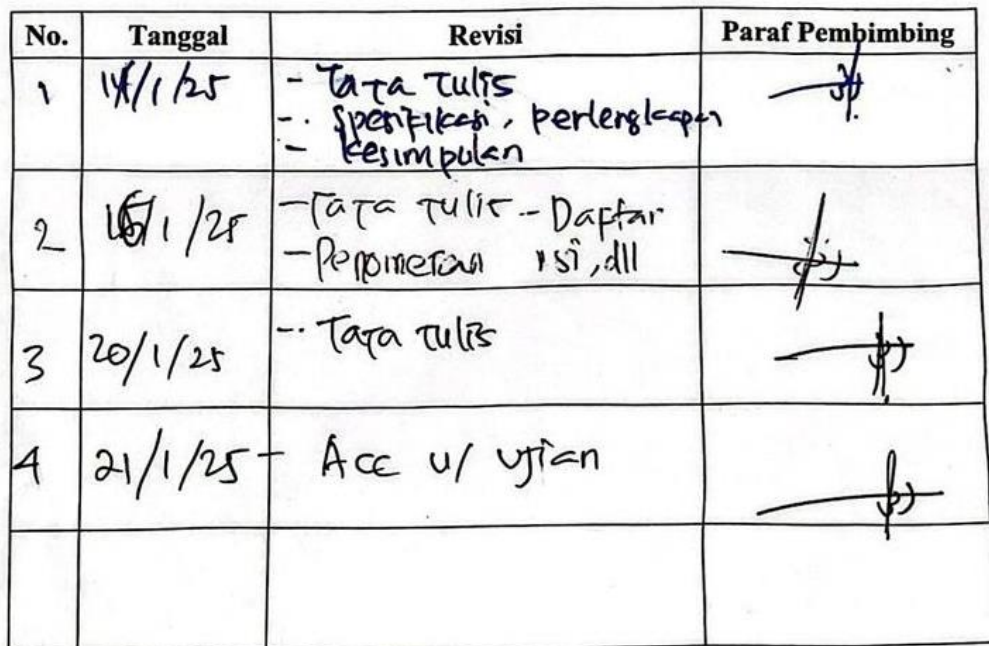 No. Tanggal Revisi Paraf Pembimbing
1 14/1/25 - Tata tulis
- Spesifikasi, perlengkapan
- Kesimpulan
2 /1/25 - Tata tulis - Daftar
- Penomeran isi, dll
3 20/1/25 - Tata tulis
4 21/1/25 - Acc u/ ujian